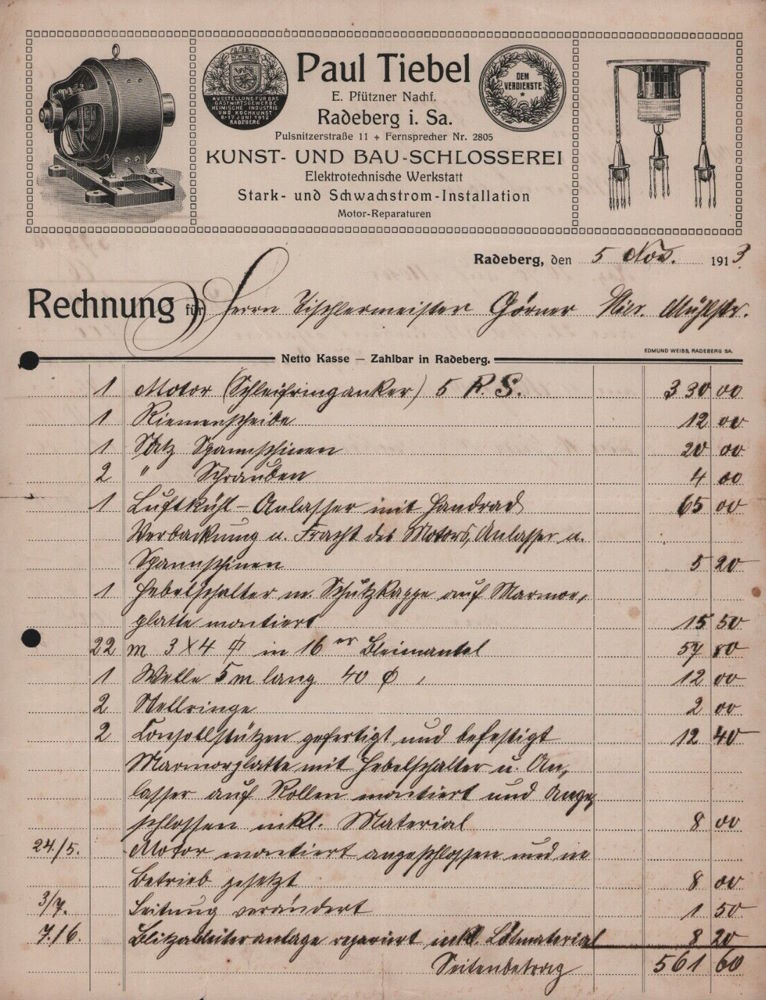 AUSSTELLUNG FÜR DAS
GASTWIRTSGEWERBE
HEIMISCHE INDUSTRIE
UND KOCHKUNST
8-17 JUNI 1912
RADEBERG
Paul Tiebel
DEM
VERDIENSTE
E. Pfützner Nachf.
Radeberg i. Sa.
Pulsnitzerstraße 11 + Fernsprecher Nr. 2805
KUNST- UND BAU-SCHLOSSEREI
Elektrotechnische Werkstatt
Stark- und Schwachstrom-Installation
Motor-Reparaturen
Radeberg, den 5 Nov. 1913.
Rechnung für Herrn Tischlermeister Görner
EDMUND WEISS, RADEBERG SA.
Netto Kasse — Zahlbar in Radeberg.
1 Motor (Schleifringanker) 5 P.S. 330 00
1 Riemenscheibe 12 00
1 Satz Spannschinen 20 00
2 " Schrauben 4 00
1 Luftkühl-Anlasser mit Handrad 65 00
Verbackung u. Fracht des Motors, Anlasser u.
Spannschinen 5 20
1 Hebelschalter m. Schutzkappe auf Marmor,
platte montiert 15 50
22 m 3X4 in 16 er Bleimantel 57 80
1 Welle 5 m lang 40 ϕ 12 00
2 Stellringe 2 00
2 Consollstützen gefertigt und befestigt 12 40
Marmorplatte mit Hebelschalter u. An,
lasser auf Rollen montiert und ange,
schlossen inkl. Material 8 00
24./5. Motor montiert angeschlossen und in
Betrieb gesetzt 8 00
3/7. Leitung verändert 1 50
7./6. Blizableiteranlage repariert inkl. Lötmaterial 8 20
Seitenbetrag 561 60